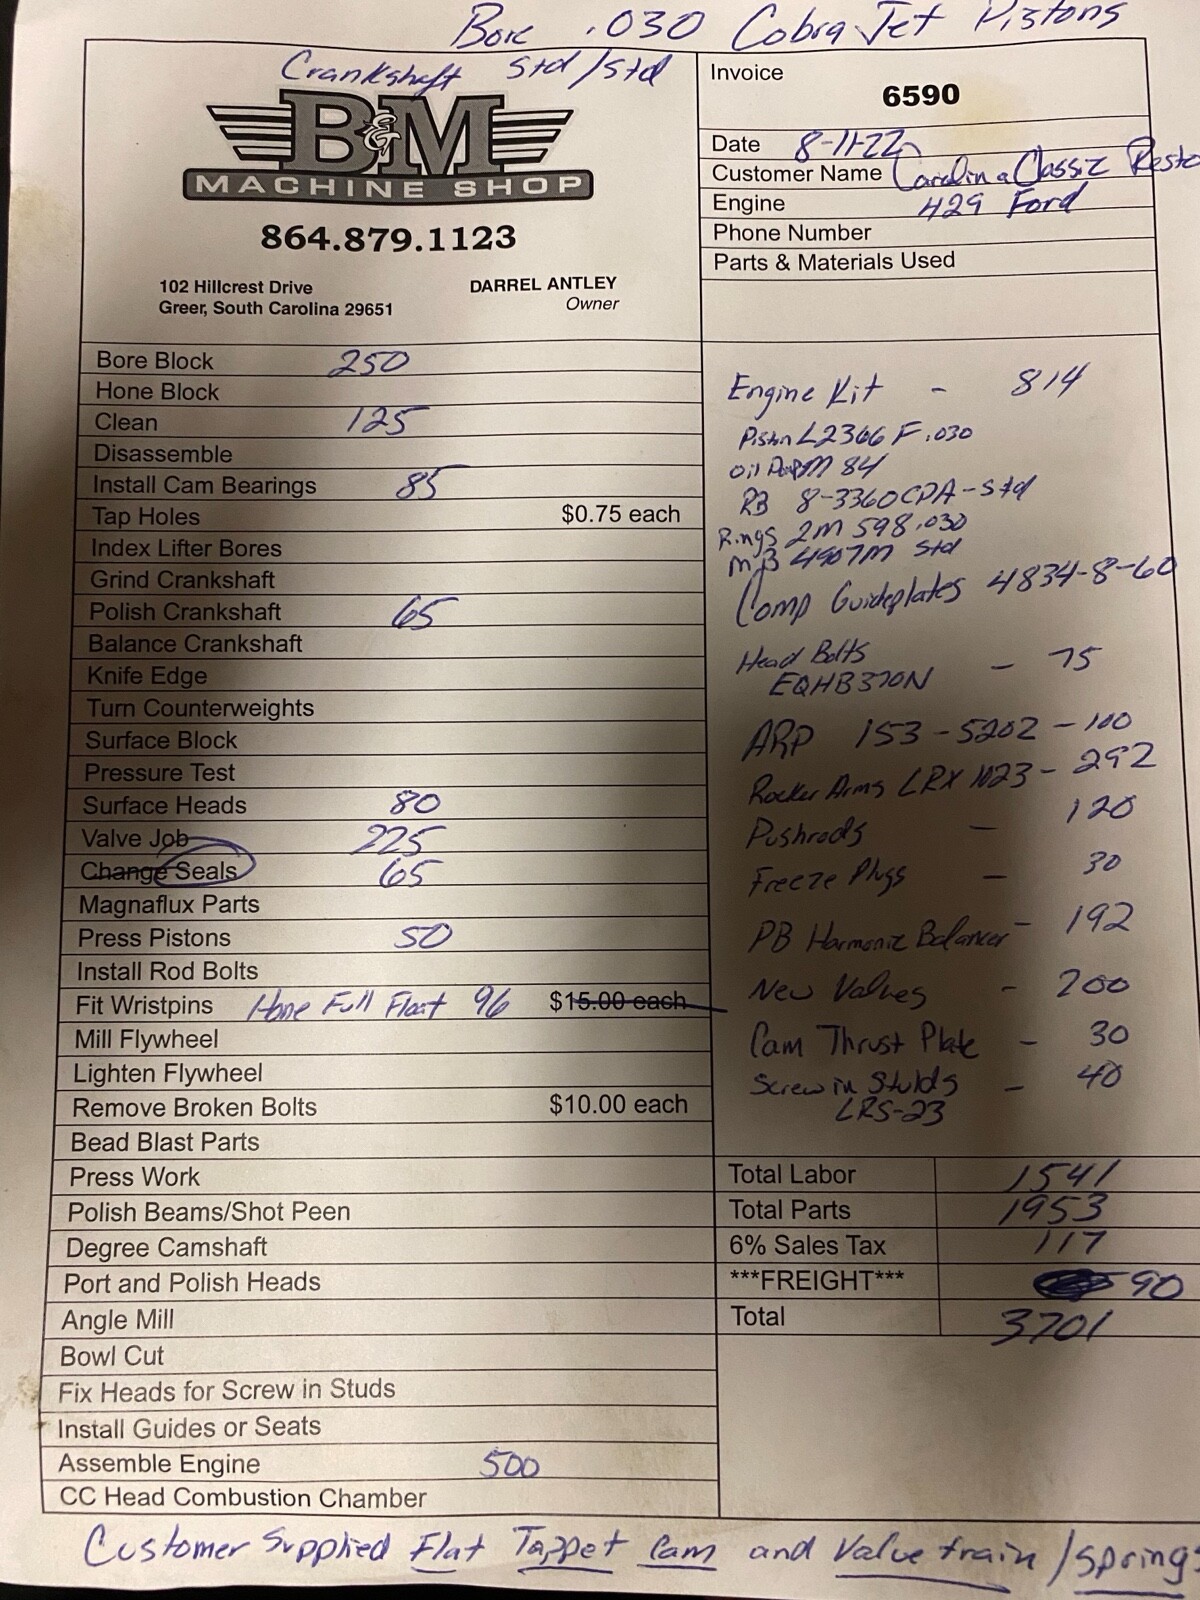 Bore .030 Cobra Jet Pistons
Crankshaft Std/Std
B&M
MACHINE SHOP
864.879.1123
102 Hillcrest Drive
Greer, South Carolina 29651
DARREL ANTLEY
Owner
Invoice
6590
Date 8-11-22
Customer Name Carolina Classic Resto
Engine 429 Ford
Phone Number
Parts & Materials Used
Bore Block 250
Hone Block
Clean 125
Disassemble
Install Cam Bearings 85
Tap Holes $0.75 each
Index Lifter Bores
Grind Crankshaft
Polish Crankshaft 65
Balance Crankshaft
Knife Edge
Turn Counterweights
Surface Block
Pressure Test
Surface Heads 80
Valve Job 225
Change Seals 65
Magnaflux Parts
Press Pistons 50
Install Rod Bolts
Fit Wristpins Hone Full Float 96 $15.00 each
Mill Flywheel
Lighten Flywheel
Remove Broken Bolts $10.00 each
Bead Blast Parts
Press Work
Polish Beams/Shot Peen
Degree Camshaft
Port and Polish Heads
Angle Mill
Bowl Cut
Fix Heads for Screw in Studs
Install Guides or Seats
Assemble Engine 500
CC Head Combustion Chamber
Engine Kit - 814
Pistn L2366 F .030
Oil M 84
RB 8-3360CPA-Std
Rings 2M 598.030
MB 4907M Std
Comp Guideplates 4834-8-60
Head Bolts - 75
EQHB370N
ARP 153-5202-100
Rocker Arms LRX 1023 - 292
Pushrods - 120
Freeze Plugs - 30
PB Harmonic Balancer - 192
New Valves - 200
Cam Thrust Plate - 30
Screw in Studs - 40
LRS-23
Total Labor 1541
Total Parts 1953
6% Sales Tax 117
***FREIGHT*** 90
Total 3701
Customer Supplied Flat Tappet Cam and Valve train / Springs